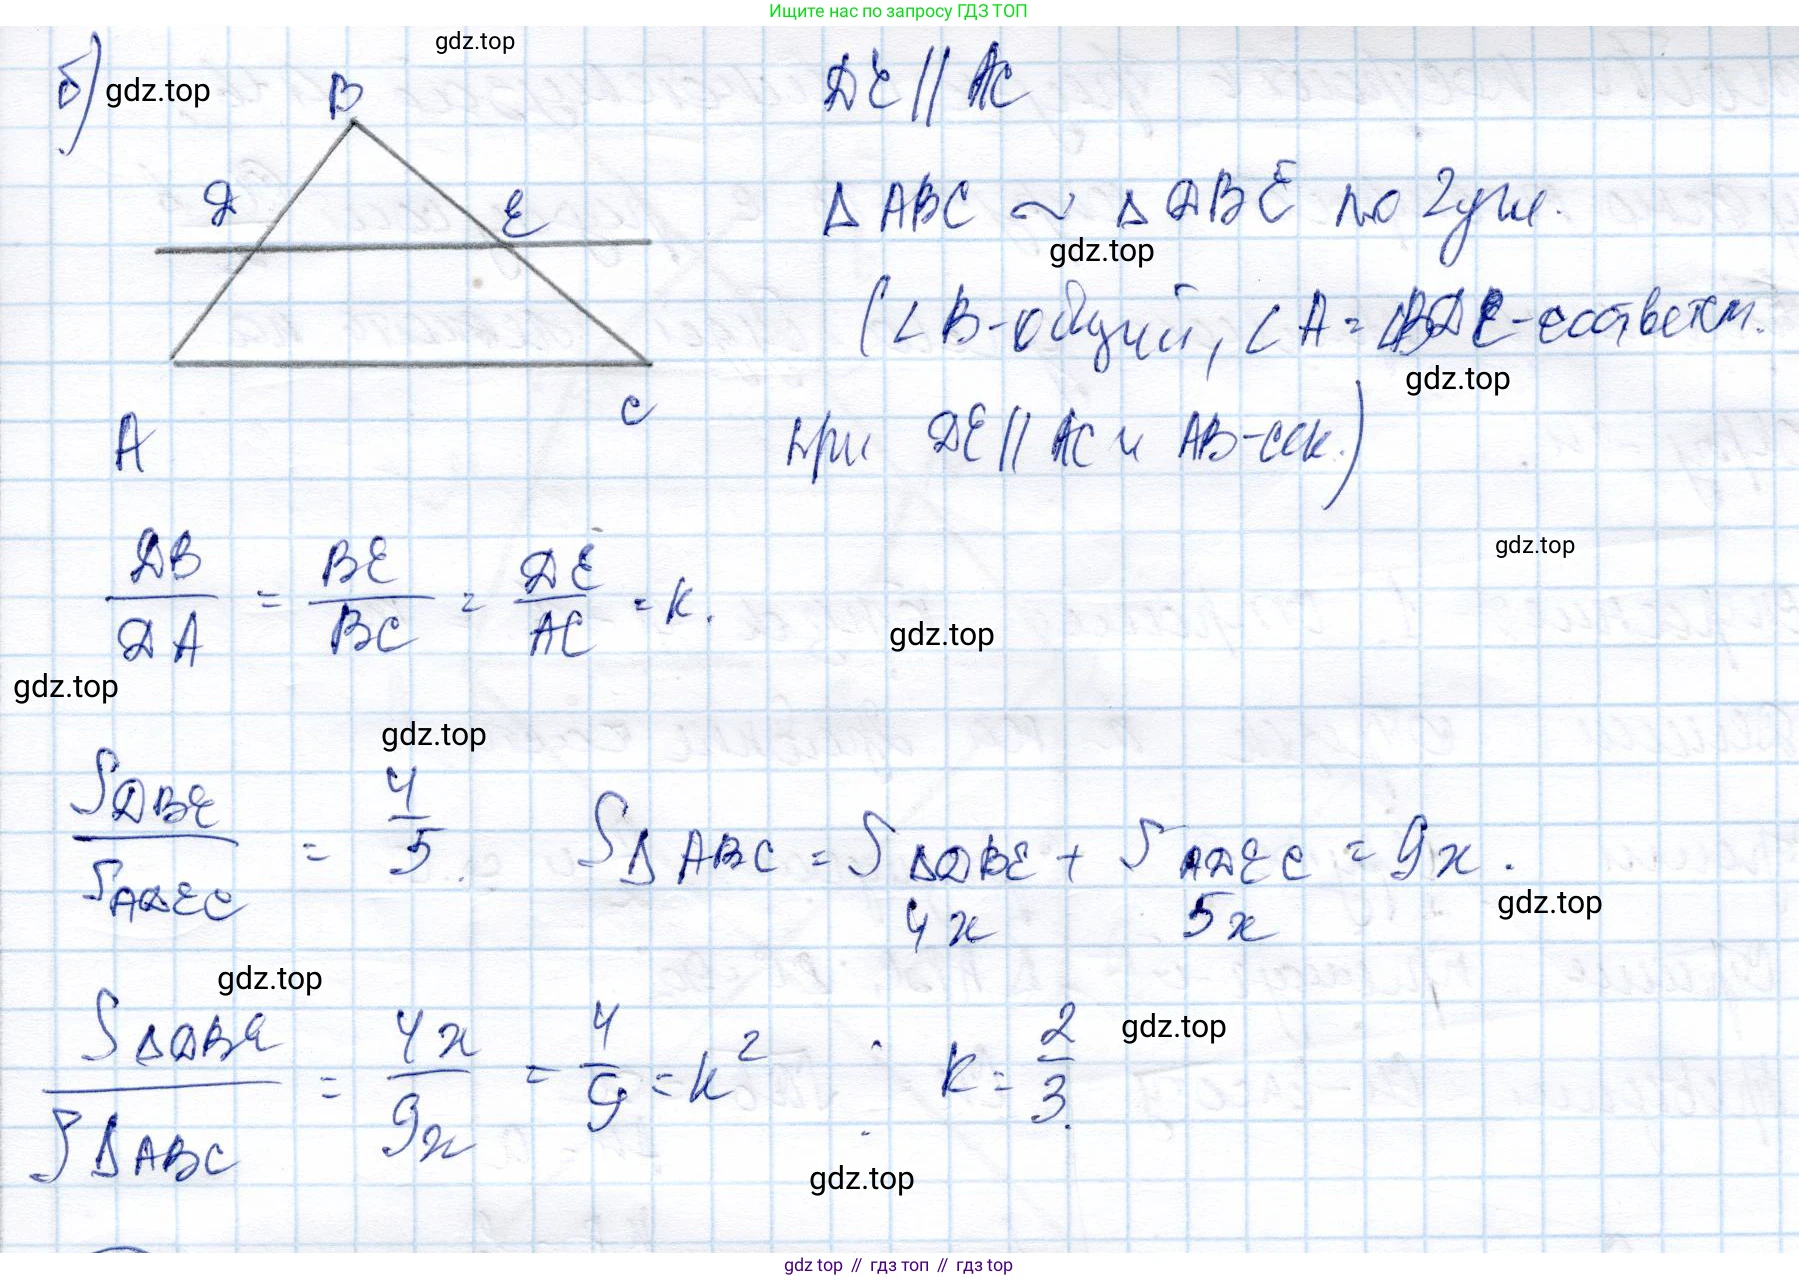 Ищите нас по запросу ГДЗ ТОП
gdz.top
б) gdz.top
B
D E
A C
DE || AC
Δ ABC ~ Δ DBE по 2 угл.
gdz.top
(∠B - общий, ∠A = ∠BDE - соответств.
gdz.top
при DE || AC и AB - сек.)
gdz.top
DB/DA = BE/BC = DE/AC = k.
gdz.top
gdz.top
gdz.top
S DBE / S ADEC = 4/5. S Δ ABC = S Δ DBE + S ADEC = 9x.
4x 5x
gdz.top
gdz.top
S Δ DBE / S Δ ABC = 4x/9x = 4/9 = k² : k = 2/3.
gdz.top
gdz.top
gdz.top // гдз топ // гдз top